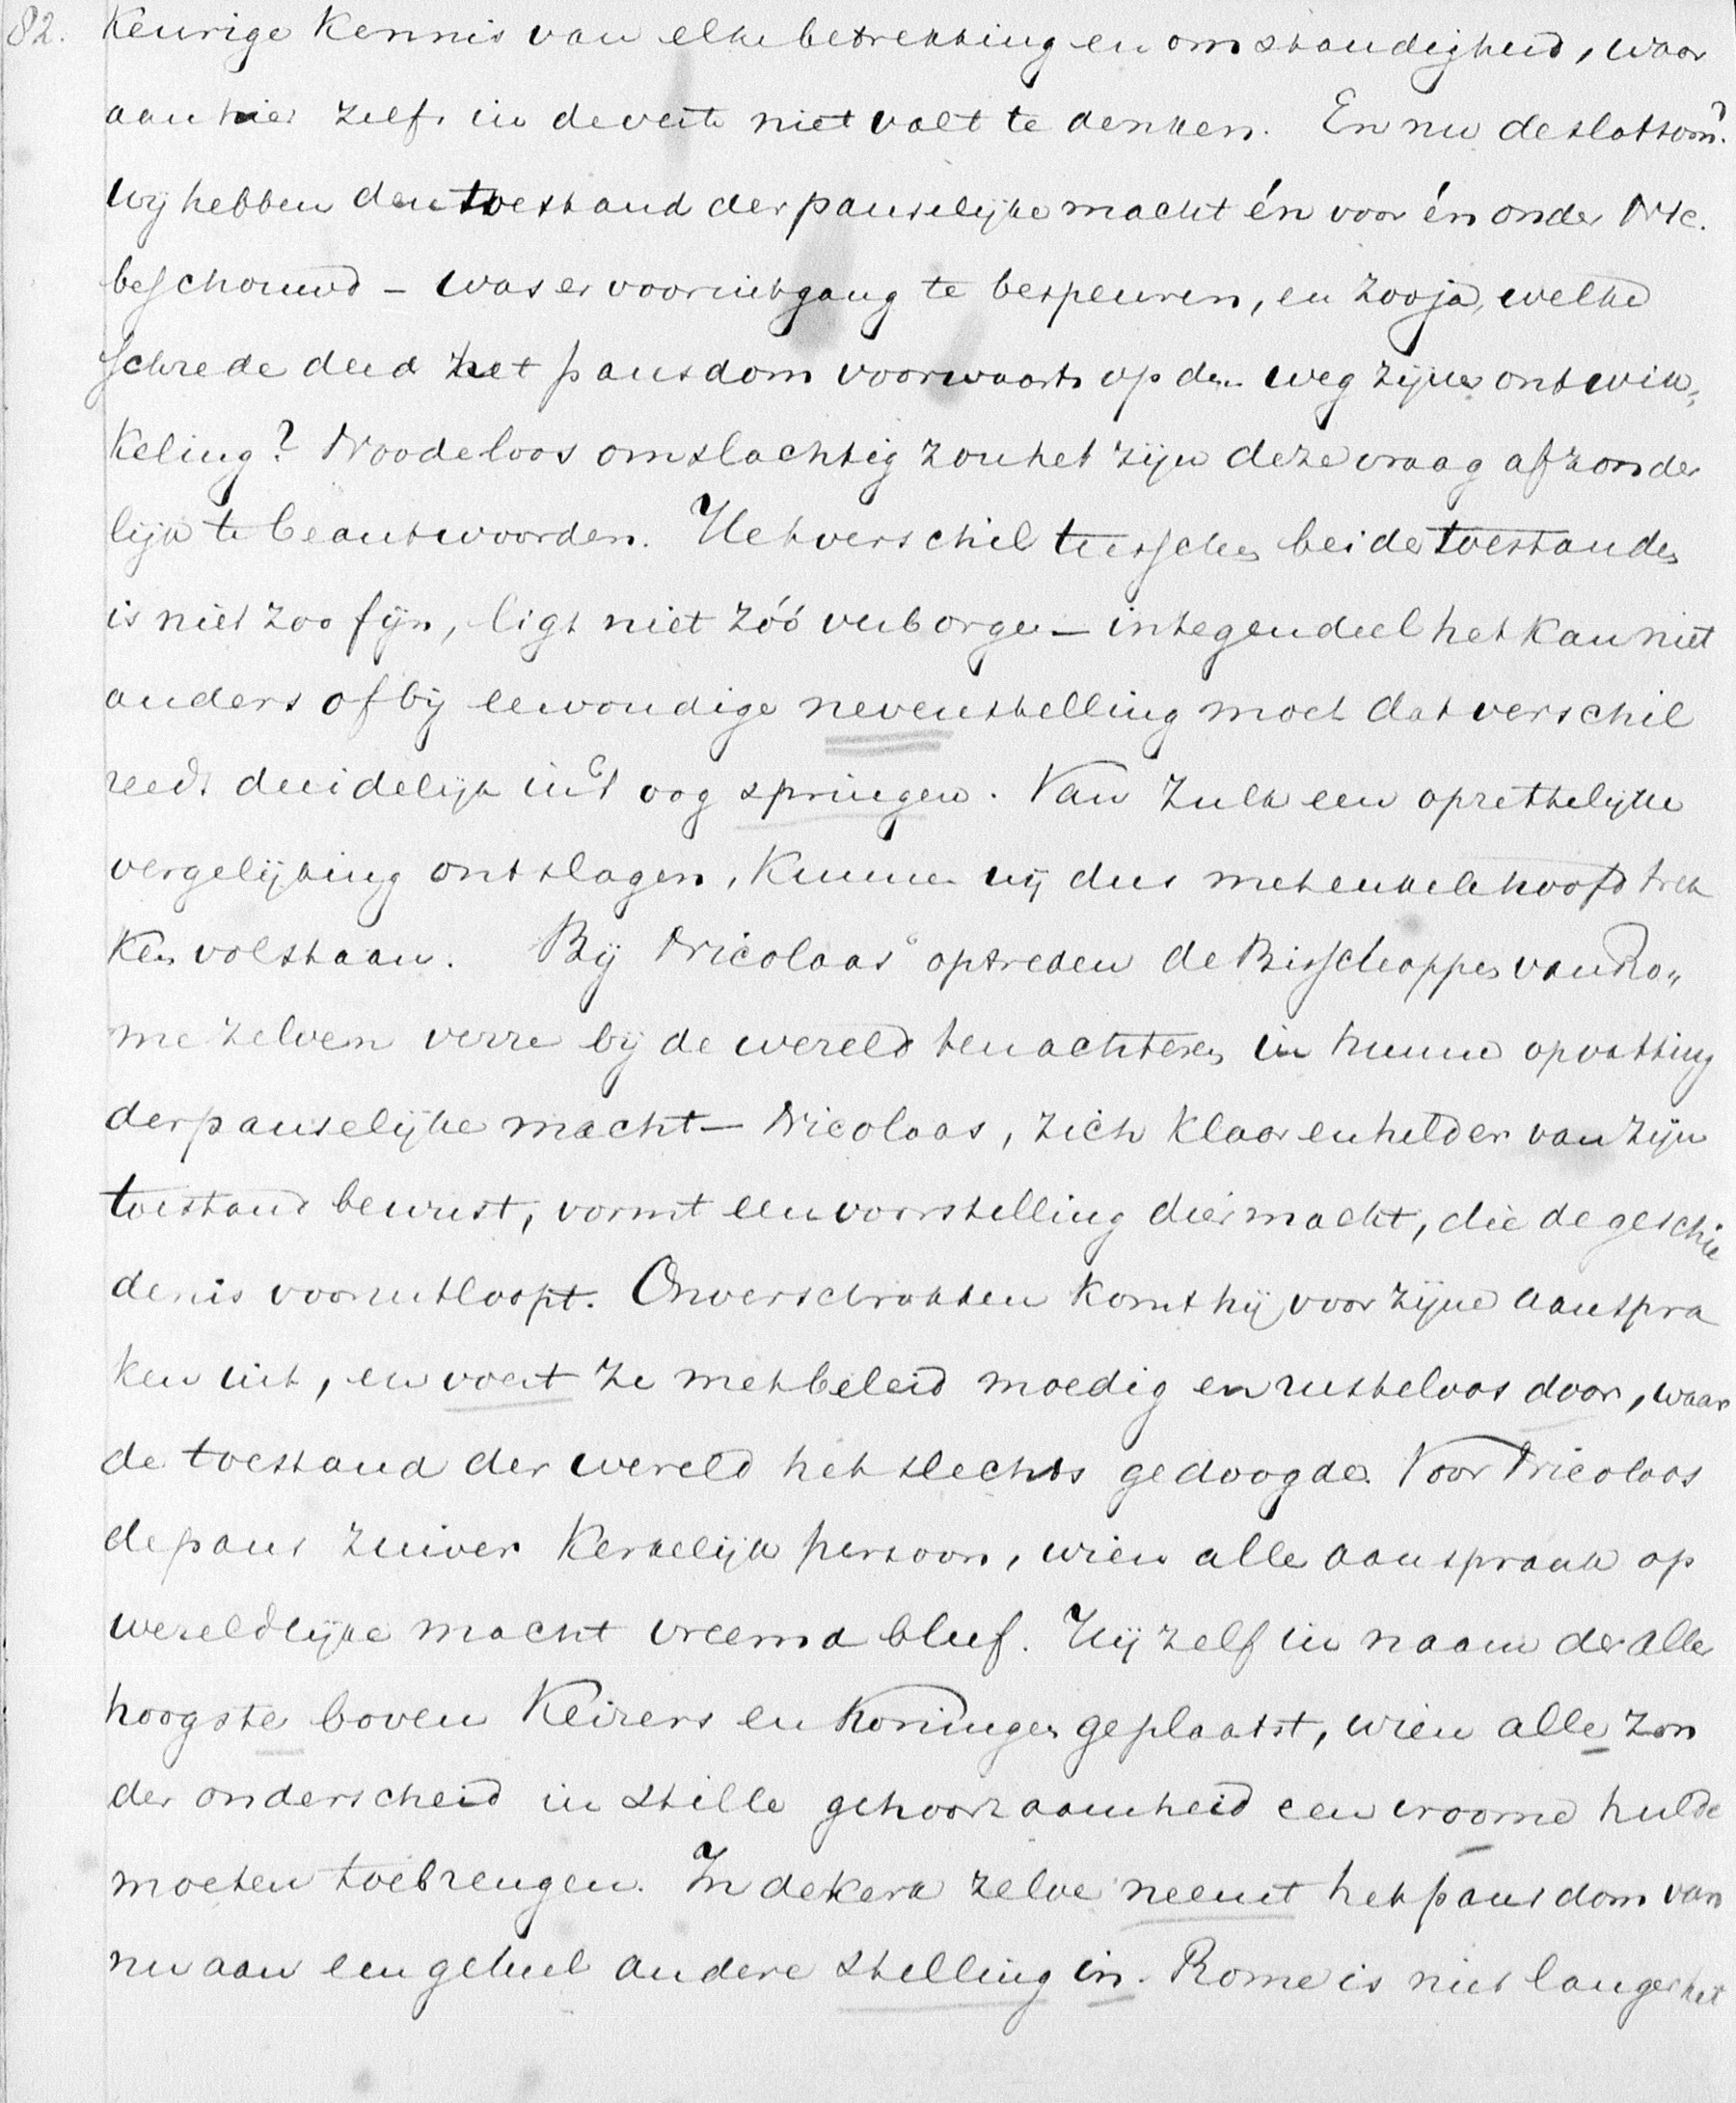 82. keurige kennis van elke betrekking en omstandigheid, waar
aan hier zelfs in de verte niet valt te denken. En nu de slotsom?
wij hebben den toestand der pauselijke macht én voor én onder Nic.
beschouwd – was er vooruitgang te bespeuren, en zoo ja, welke
schrede deed het pausdom voorwaarts op den weg zijner ontwik„
keling? Noodeloos omslachtig zou het zijn deze vraag afzonder
lijk te beantwoorden. Het verschil tusschen beide toestanden
is niet zoo fijn, ligt niet zóó verborgen – integendeel het kan niet
anders of bij eenvoudige nevenstelling moet dat verschil
reeds duidelijk in 't oog springen. Van zulk een opzettelijke
vergelijking ontslagen, kunnen wij dus met enkele hoofdtrek
ken volstaan. Bij Nicolaas' optreden de Bisschoppen van Ro„
me zelven verre bij de wereld ten achteren in hunne opvatting
der pauselijke macht – Nicolaas, zich klaar en helder van zijn
toestand bewust, vormt een voorstelling dier macht, die de geschie
denis vooruitloopt. Onverschrokken komt hij voor zijne aanspra
ken uit, en voert ze met beleid moedig en rusteloos door, waar
de toestand der wereld het slechts gedoogde. Voor Nicolaas
de paus zuiver kerkelijk persoon, wien alle aanspraak op
wereldlijke macht vreemd bleef. Hij zelf in naam der aller
hoogste boven Keizers en Koningen geplaatst, wien alle zon
der onderscheid in stille gehoorzaamheid een vroome hulde
moeten toebrengen. In de kerk zelve neemt het pausdom van
nu aan een geheel andere stelling in. Rome is niet langer het